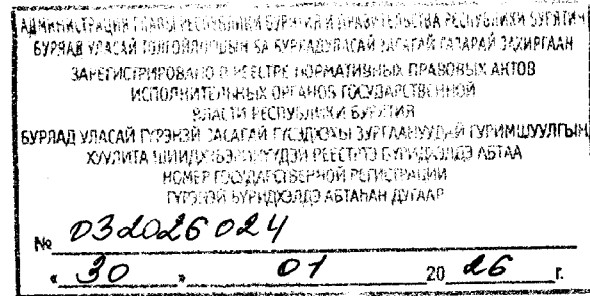 АДМИНИСТРАЦИЯ ГЛАВЫ РЕСПУБЛИКИ БУРЯТИЯ И ПРАВИТЕЛЬСТВА РЕСПУБЛИКИ БУРЯТИЯ
БУРЯАД УЛАСАЙ ЗАСАГАЙ ГАЗАРАЙ ЗАХИРГААН
ЗАРЕГИСТРИРОВАНО В РЕЕСТРЕ НОРМАТИВНЫХ ПРАВОВЫХ АКТОВ
ИСПОЛНИТЕЛЬНЫХ ОРГАНОВ ГОСУДАРСТВЕННОЙ
ВЛАСТИ РЕСПУБЛИКИ БУРЯТИЯ
УЛАСАЙ ГҮРЭНЭЙ ЗАСАГАЙ ГҮРИМШУУЛГЫН
ХУУЛИТА РЕЕСТРТЭ БҮРИДХЭЛДЭ АБТАА
НОМЕР ГОСУДАРСТВЕННОЙ РЕГИСТРАЦИИ
ГҮРЭНЭЙ БҮРИДХЭЛДЭ АБТАҺАН ДУГААР
№ 032026024
« 30 » 01 20 26 г.